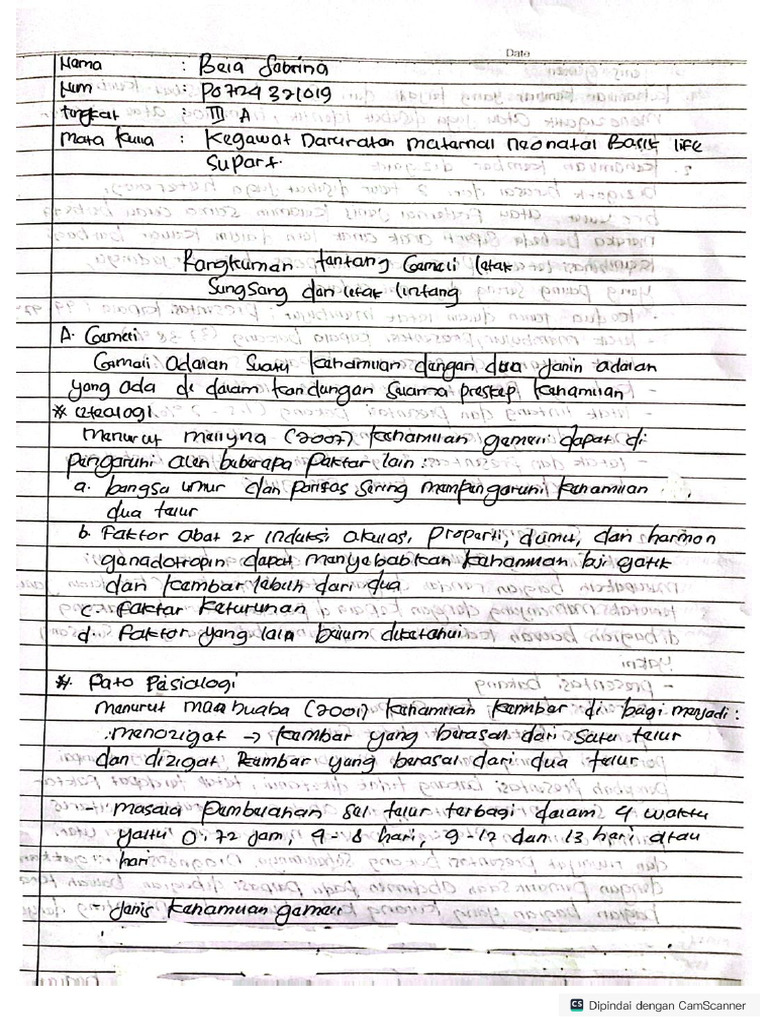 Date
Nama : Bela Sabrina
Nim : P07124321019
Tingkat : III A
Mata kulia : Kegawat Daruratan maternal neonatal Basic life
Suport.
Rangkuman tantang Gameli letak
SungSang dan letak lintang
A. Gameli
Gamali adalan Suatu kahamilan dangan dua Janin adalan
yang ada di dalam kandungan Suama preskep kahamilan
* etealogi
Menurut mellyna (2007) kahamilan gameli dapat di
pangaruhi alen bebarapa Paktar lain :
a. bangsa umur dan paritas Sering mampangaruhi kahamilan
dua talur
b. Faktor abat 2x Induksi akulas, properti, dumut, dan harmon
ganadotropin dapat manyababkan kahamilan bizigatik
dan kambar labih dari dua
c. faktar Katurunan
d. Faktor yang lain balum diketahui
* Pato Pasialogi
Manurut maabuaba (2001) kahamilan kambar di bagi manjadi :
manozigat → kambar yang berasal dari Satu talur
dan dizigat Kambar yang berasal dari dua talur
- masala Pambalahan Sal talur tarbagi dalam 4 waktu
yaitu 0-72 Jam, 4-8 hari, 9-12 dan 13 hari atau
hari
- Janis kahamilan gameli
CS Dipindai dengan CamScanner